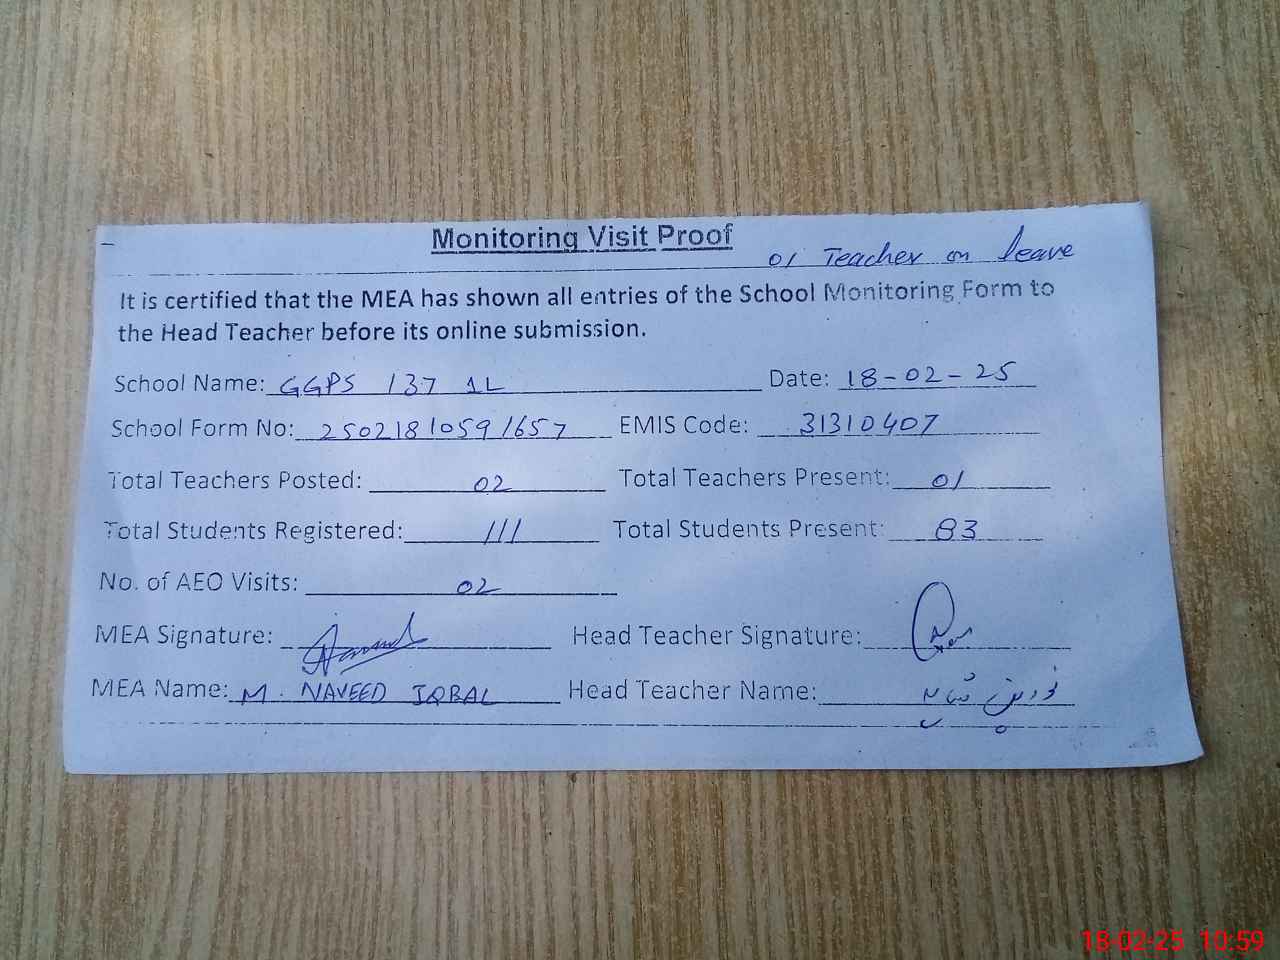 Monitoring Visit Proof
01 Teacher on leave
It is certified that the MEA has shown all entries of the School Monitoring Form to
the Head Teacher before its online submission.
School Name: GGPS 137 1L Date: 18-02-25
School Form No: 25021810591657 EMIS Code: 31310407
Total Teachers Posted: 02 Total Teachers Present: 01
Total Students Registered: 111 Total Students Present: 83
No. of AEO Visits: 02
MEA Signature: Head Teacher Signature:
MEA Name: M. NAVEED IQBAL Head Teacher Name:
18-02-25 10:59